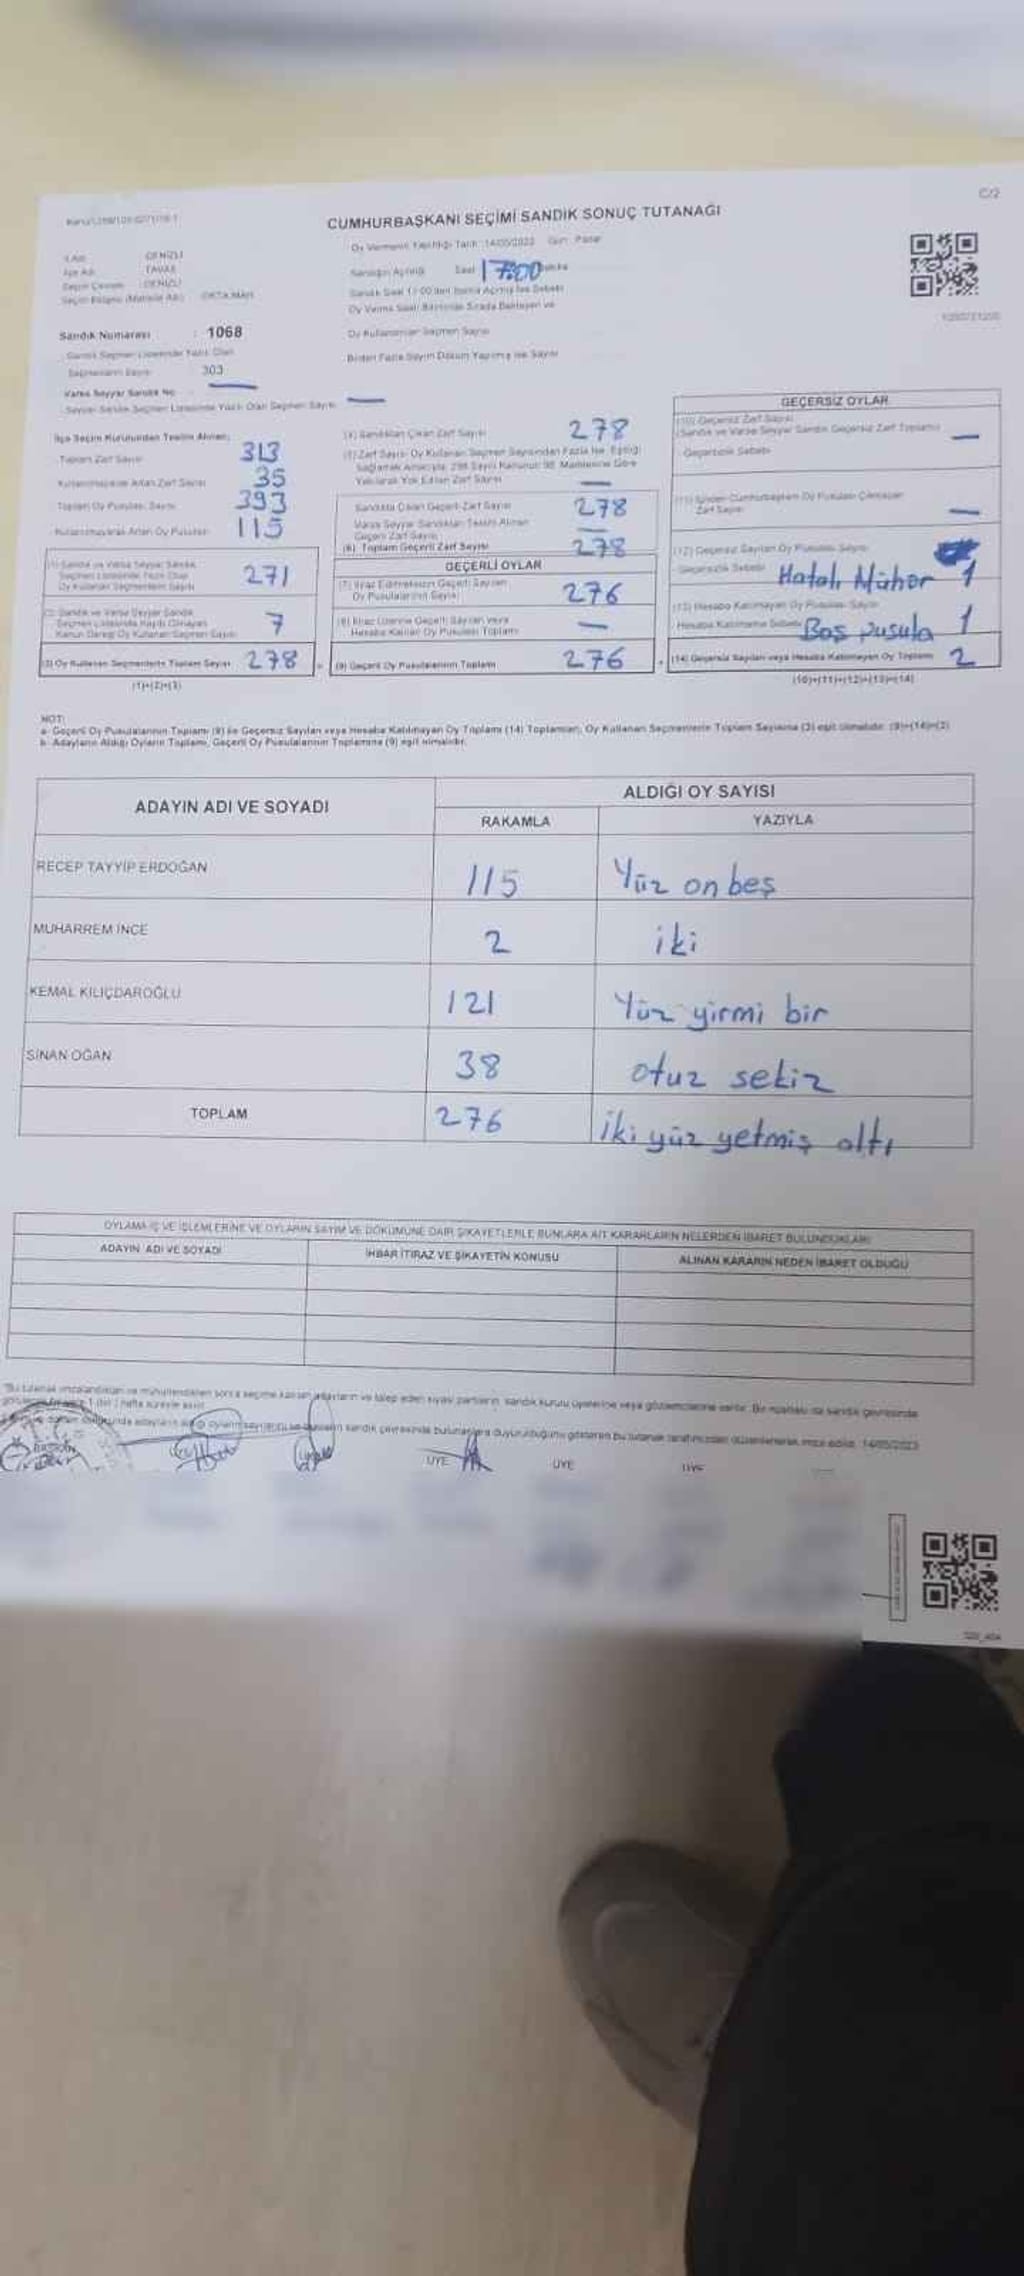 C/2
CUMHURBAŞKANI SEÇİMİ SANDIK SONUÇ TUTANAĞI
Oy Vermenin Yapıldığı Tarih :14/05/2023 Gün : Pazar
İli Adı : DENİZLİ
İlçe Adı : TAVAS
Seçim Çevresi : DENİZLİ
Seçim Bölgesi (Mahalle Adı) : ORTA MAH.
Sandığın Açıldığı Saat 17:00
Sandık Saat 17:00'den Sonra Açılmış İse Sebebi
Oy Verme Saati Bitiminde Sırada Bekleyen ve
Oy Kullananların Seçmen Sayısı
Birden Fazla Sayım Döküm Yapılmış İse Sayısı
Sandık Numarası : 1068
Sandık Seçmen Listesinde Yazılı Olan
Seçmenlerin Sayısı 303
Varsa Seyyar Sandık No —
Seyyar Sandık Seçmen Listesinde Yazılı Olan Seçmen Sayısı —
İlçe Seçim Kurulundan Teslim Alınan;
Toplam Zarf Sayısı 313
Kullanılmayarak Artan Zarf Sayısı 35
Toplam Oy Pusulası Sayısı 393
Kullanılmayarak Artan Oy Pusulası 115
(1) Sandık ve Varsa Seyyar Sandık
Seçmen Listesinde Yazılı Olup
Oy Kullanan Seçmenlerin Sayısı 271
(2) Sandık ve Varsa Seyyar Sandık
Seçmen Listesinde Kayıtlı Olmayan
Kanun Gereği Oy Kullanan Seçmen Sayısı 7
(3) Oy Kullanan Seçmenlerin Toplam Sayısı 278
(1)+(2)=(3)
(4) Sandıktan Çıkan Zarf Sayısı 278
(5) Zarf Sayısı Oy Kullanan Seçmen Sayısından Fazla İse Eşitliği
Sağlamak Amacıyla, 298 Sayılı Kanunun 98. Maddesine Göre
Yakılarak Yok Edilen Zarf Sayısı —
Sandıkta Çıkan Geçerli Zarf Sayısı 278
Varsa Seyyar Sandıktan Teslim Alınan
Geçerli Zarf Sayısı —
(6) Toplam Geçerli Zarf Sayısı 278
GEÇERLİ OYLAR
(7) İtiraz Edilmeksizin Geçerli Sayılan
Oy Pusulalarının Sayısı 276
(8) İtiraz Üzerine Geçerli Sayılan veya
Hesaba Katılan Oy Pusulası Toplamı —
(9) Geçerli Oy Pusulalarının Toplamı 276
GEÇERSİZ OYLAR
(10) Geçersiz Zarf Sayısı
(Sandık ve Varsa Seyyar Sandık Geçersiz Zarf Toplamı) —
Geçersizlik Sebebi
(11) İçinden Cumhurbaşkanı Oy Pusulası Çıkmayan
Zarf Sayısı —
(12) Geçersiz Sayılan Oy Pusulası Sayısı
Geçersizlik Sebebi Hatalı Mühür 1
(13) Hesaba Katılmayan Oy Pusulası Sayısı
Hesaba Katılmama Sebebi Boş pusula 1
(14) Geçersiz Sayılan veya Hesaba Katılmayan Oy Toplamı 2
(10)+(11)+(12)+(13)=(14)
NOT:
a- Geçerli Oy Pusulalarının Toplamı (9) ile Geçersiz Sayılan veya Hesaba Katılmayan Oy Toplamı (14) Toplamları, Oy Kullanan Seçmenlerin Toplam Sayısına (3) eşit olmalıdır. (9)+(14)=(3)
b- Adayların Aldığı Oyların Toplamı, Geçerli Oy Pusulalarının Toplamına (9) eşit olmalıdır.
ADAYIN ADI VE SOYADI ALDIĞI OY SAYISI
RAKAMLA YAZIYLA
RECEP TAYYİP ERDOĞAN 115 Yüz on beş
MUHARREM İNCE 2 iki
KEMAL KILIÇDAROĞLU 121 Yüz yirmi bir
SİNAN OĞAN 38 otuz sekiz
TOPLAM 276 iki yüz yetmiş altı
OYLAMA İŞ VE İŞLEMLERİNE VE OYLARIN SAYIM VE DÖKÜMÜNE DAİR ŞİKAYETLERLE BUNLARA AİT KARARLARIN NELERDEN İBARET BULUNDUKLARI
ADAYIN ADI VE SOYADI İHBAR İTİRAZ VE ŞİKAYETİN KONUSU ALINAN KARARIN NEDEN İBARET OLDUĞU
ÜYE ÜYE ÜYE